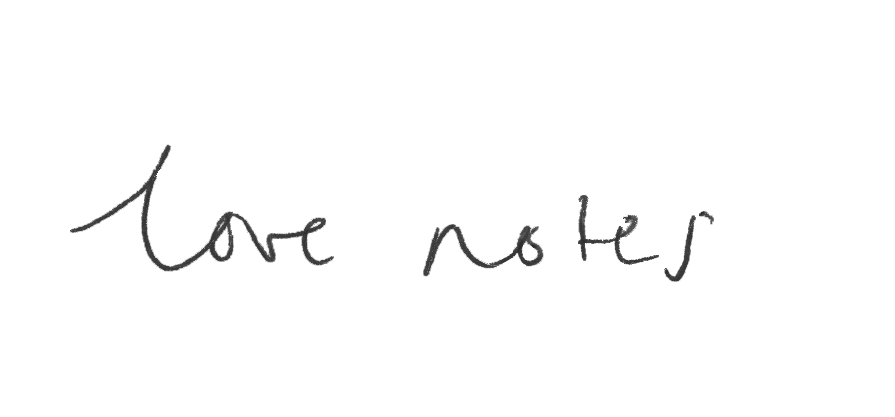 love notes